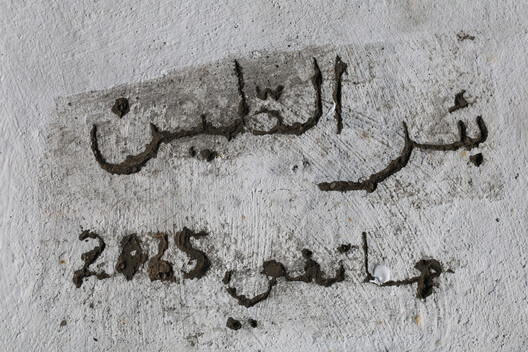 بئر الطّين
جانفي 2025